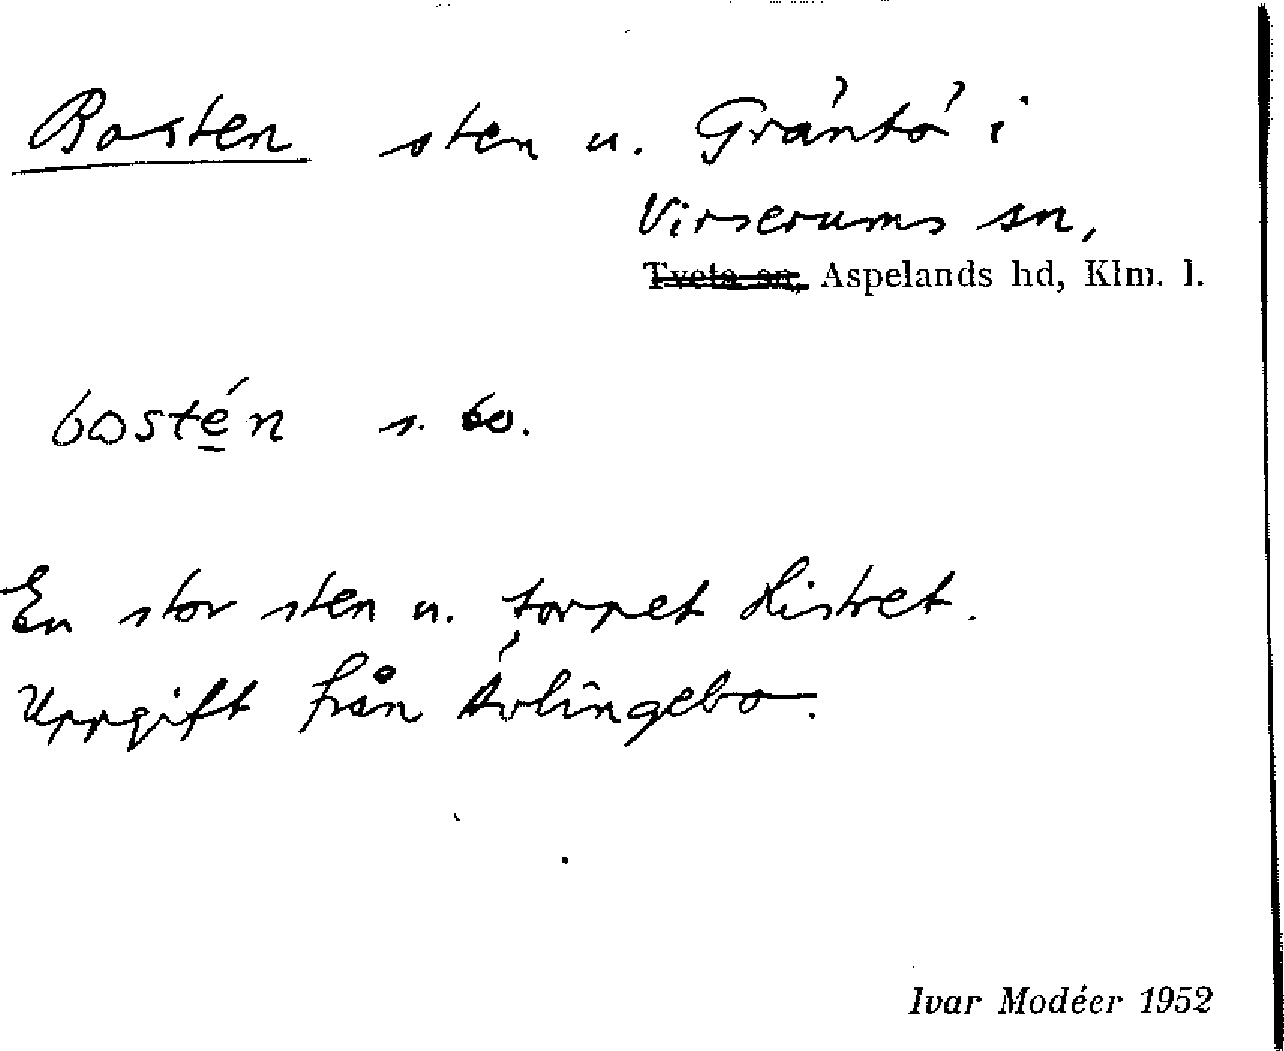 Bosten sten u. Gräntö i
Virserums sn,
Tveta sn, Aspelands hd, Klm. l.
bostén s. bo.
En stor sten u. torpet Histret.
Uppgift från Ärlingebo.
Ivar Modéer 1952